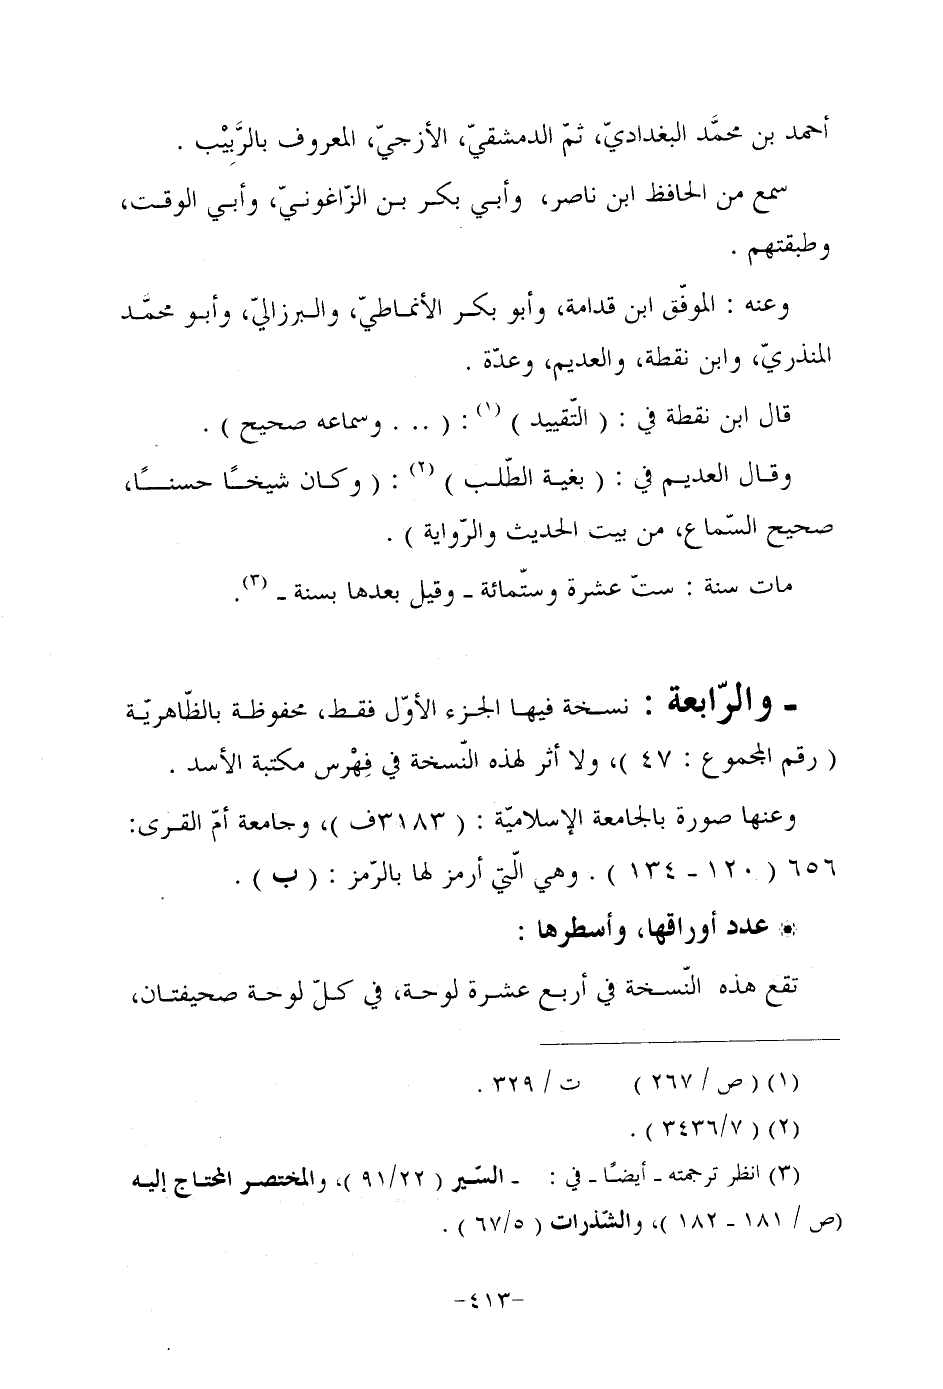 أحمد بن محمَّد البغداديّ، ثمّ الدمشقيّ، الأزجيّ، المعروف بالرَّبِيْب .
سمع من الحافظ ابن ناصر، وأبي بكر بن الزّاغونيّ، وأبي الوقت،
وطبقتهم .
وعنه : الموفّق ابن قدامة، وأبو بكر الأنماطيّ، والبرزاليّ، وأبو محمَّد
المنذريّ، وابن نقطة، والعديم، وعدّة .
قال ابن نقطة في : ( التّقييد ) (١) : ( ... وسماعه صحيح ) .
وقال العديم في : ( بغية الطّلب ) (٢) : ( وكان شيخًا حسنًا،
صحيح السّماع، من بيت الحديث والرّواية ) .
مات سنة : ستّ عشرة وستّمائة ـ وقيل بعدها بسنة ـ (٣).
ـ والرّابعة : نسخة فيها الجزء الأوّل فقط، محفوظة بالظّاهريّة
( رقم المجموع : ٤٧ )، ولا أثر لهذه النّسخة في فِهْرس مكتبة الأسد .
وعنها صورة بالجامعة الإسلاميّة : ( ٣١٨٣ف )، وجامعة أمّ القرى:
٦٥٦ ( ١٢٠ ـ ١٣٤ ) . وهي الّتي أرمز لها بالرّمز : ( ب ) .
* عدد أوراقها، وأسطرها :
تقع هذه النّسخة في أربع عشرة لوحة، في كلّ لوحة صحيفتان،
(١) ( ص / ٢٦٧ ) ت / ٣٢٩ .
(٢) ( ٧/ ٣٤٣٦ ) .
(٣) انظر ترجمته ـ أيضًا ـ في : ـ السّير ( ٢٢/ ٩١ )، والمختصر المحتاج إليه
(ص / ١٨١ ـ ١٨٢ )، والشّذرات ( ٥/ ٦٧ ) .
-٤١٣-